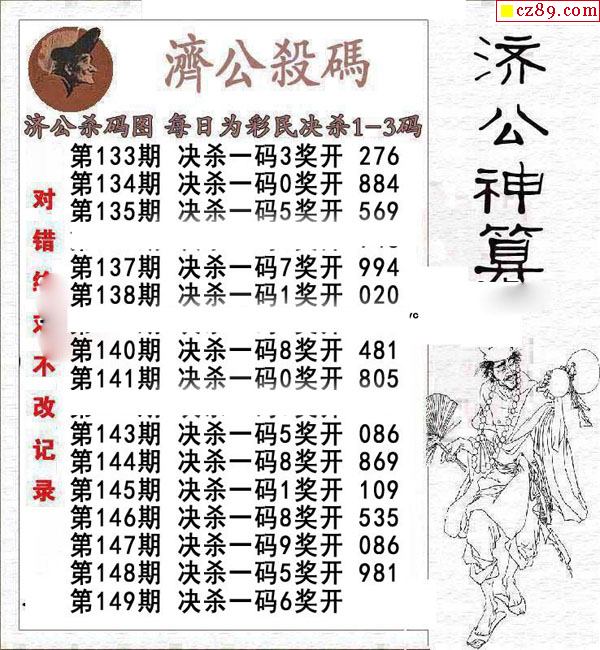 cz89.com
濟公殺碼
济公杀码图 每日为彩民决杀1-3码
第133期 决杀一码3奖开 276
第134期 决杀一码0奖开 884
第135期 决杀一码5奖开 569
第137期 决杀一码7奖开 994
第138期 决杀一码1奖开 020
第140期 决杀一码8奖开 481
第141期 决杀一码0奖开 805
第143期 决杀一码5奖开 086
第144期 决杀一码8奖开 869
第145期 决杀一码1奖开 109
第146期 决杀一码8奖开 535
第147期 决杀一码9奖开 086
第148期 决杀一码5奖开 981
第149期 决杀一码6奖开
对错
不改记录
济公神算